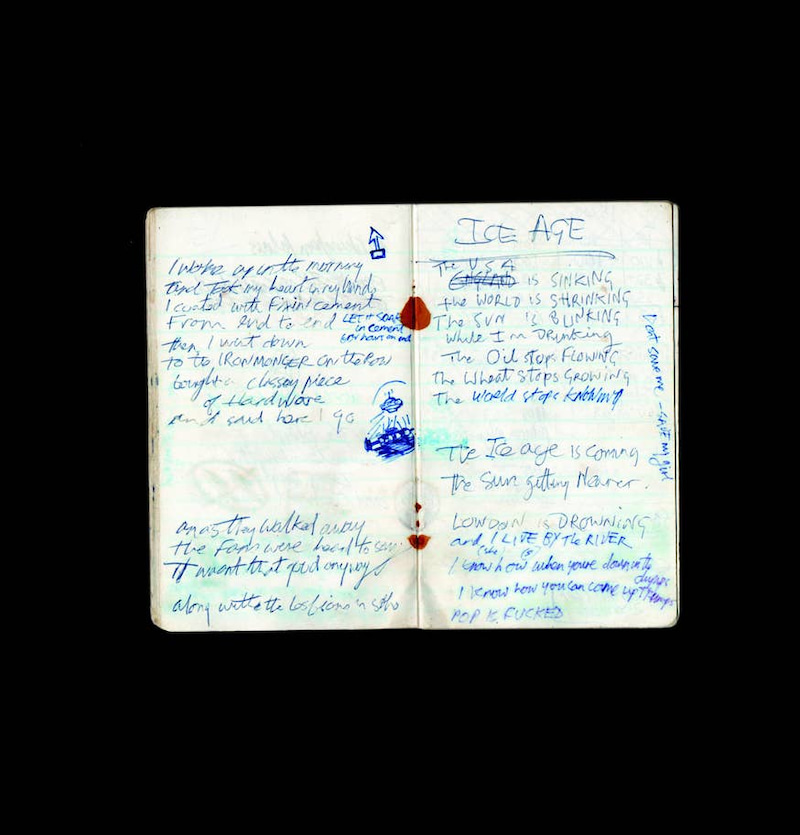 I woke up in the morning
And took my heart in my hands
I coated with Fixin' cement
From end to end
LET IT SOAK
in cement
then I went down
to the IRONMONGER on the Row
bought a classey piece
of Hardware
and said here I go
an as they walked away
the fans were heard to say
It wasnt that good anyway
along with the
ICE AGE
The U.S.A
ENGLAND IS SINKING
the WORLD IS SHRINKING
The SUN IS BLINKING
while I'm DRINKING
The Oil stops FLOWING
The Wheat stops GROWING
The World stops KNOWING
The Ice age is coming
the Sun getting Nearer.
LONDON is DROWNING
and I LIVE BY the RIVER
I know how when youre down in the
dumps
I know how you can come up
POP IS FUCKED
SAVE my girl